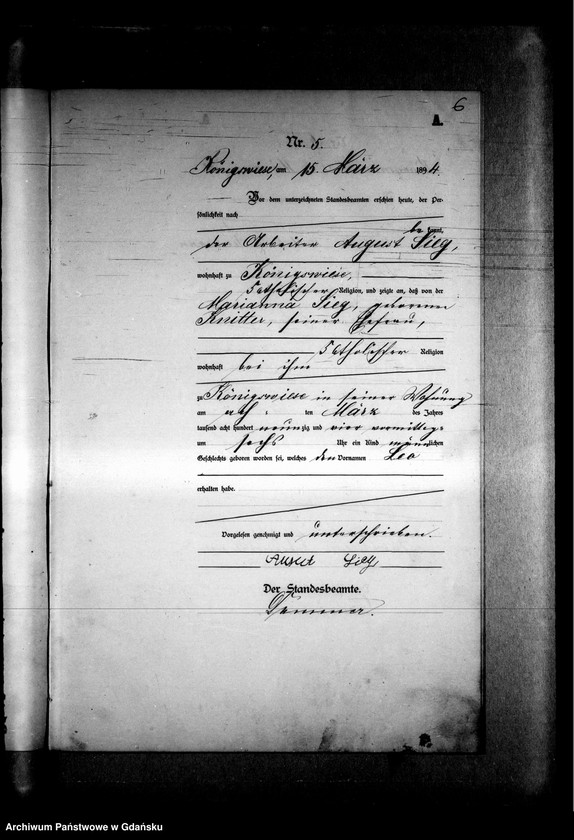 6
A.
Nr. 5.
Königswiese, am 15. März 1894.
Vor dem unterzeichneten Standesbeamten erschien heute, der Per-
sönlichkeit nach
be kannt,
der Arbeiter August Sieg,
wohnhaft zu Königswiese,
katholischer Religion, und zeigte an, daß von der
Marianna Sieg, geborenen
Knitter, seiner Ehefrau,
katholischer Religion
wohnhaft bei ihm
zu Königswiese in seiner Wohnung
am acht ten März des Jahres
tausend acht hundert neunzig und vier vormittags
um sechs Uhr ein Kind männlichen
Geschlechts geboren worden sei, welches den Vornamen Leo
erhalten habe.
Vorgelesen genehmigt und unterschrieben.
August Sieg
Der Standesbeamte.
Archiwum Państwowe w Gdańsku